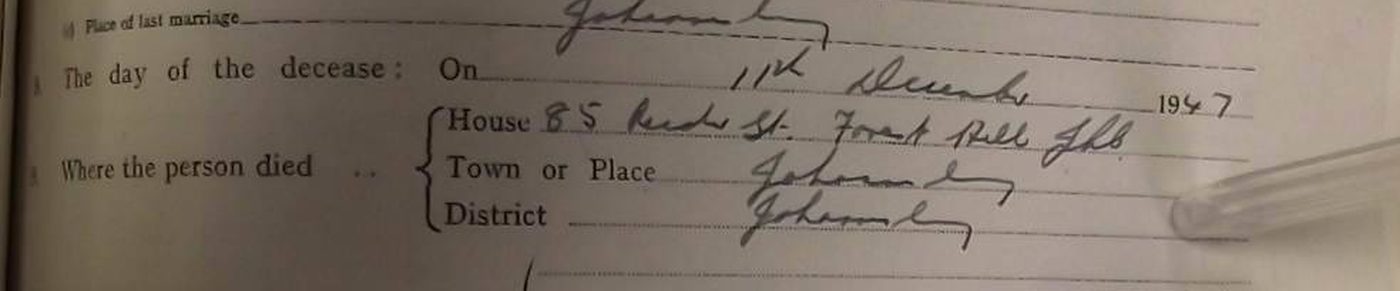 Place of last marriage Johannesburg
The day of the decease: On 11th December 1947
House 85 St. Forest Hill Jhb.
Where the person died .. Town or Place Johannesburg
District Johannesburg